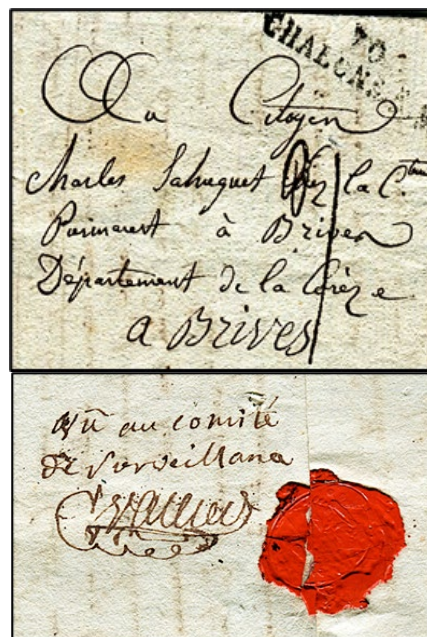 70
CHALONS
Au Citoyen
Charles Sahuguet chez la C.
à Brives
Département de la Corèze
a BRIVES
vû au comité
de Surveillance